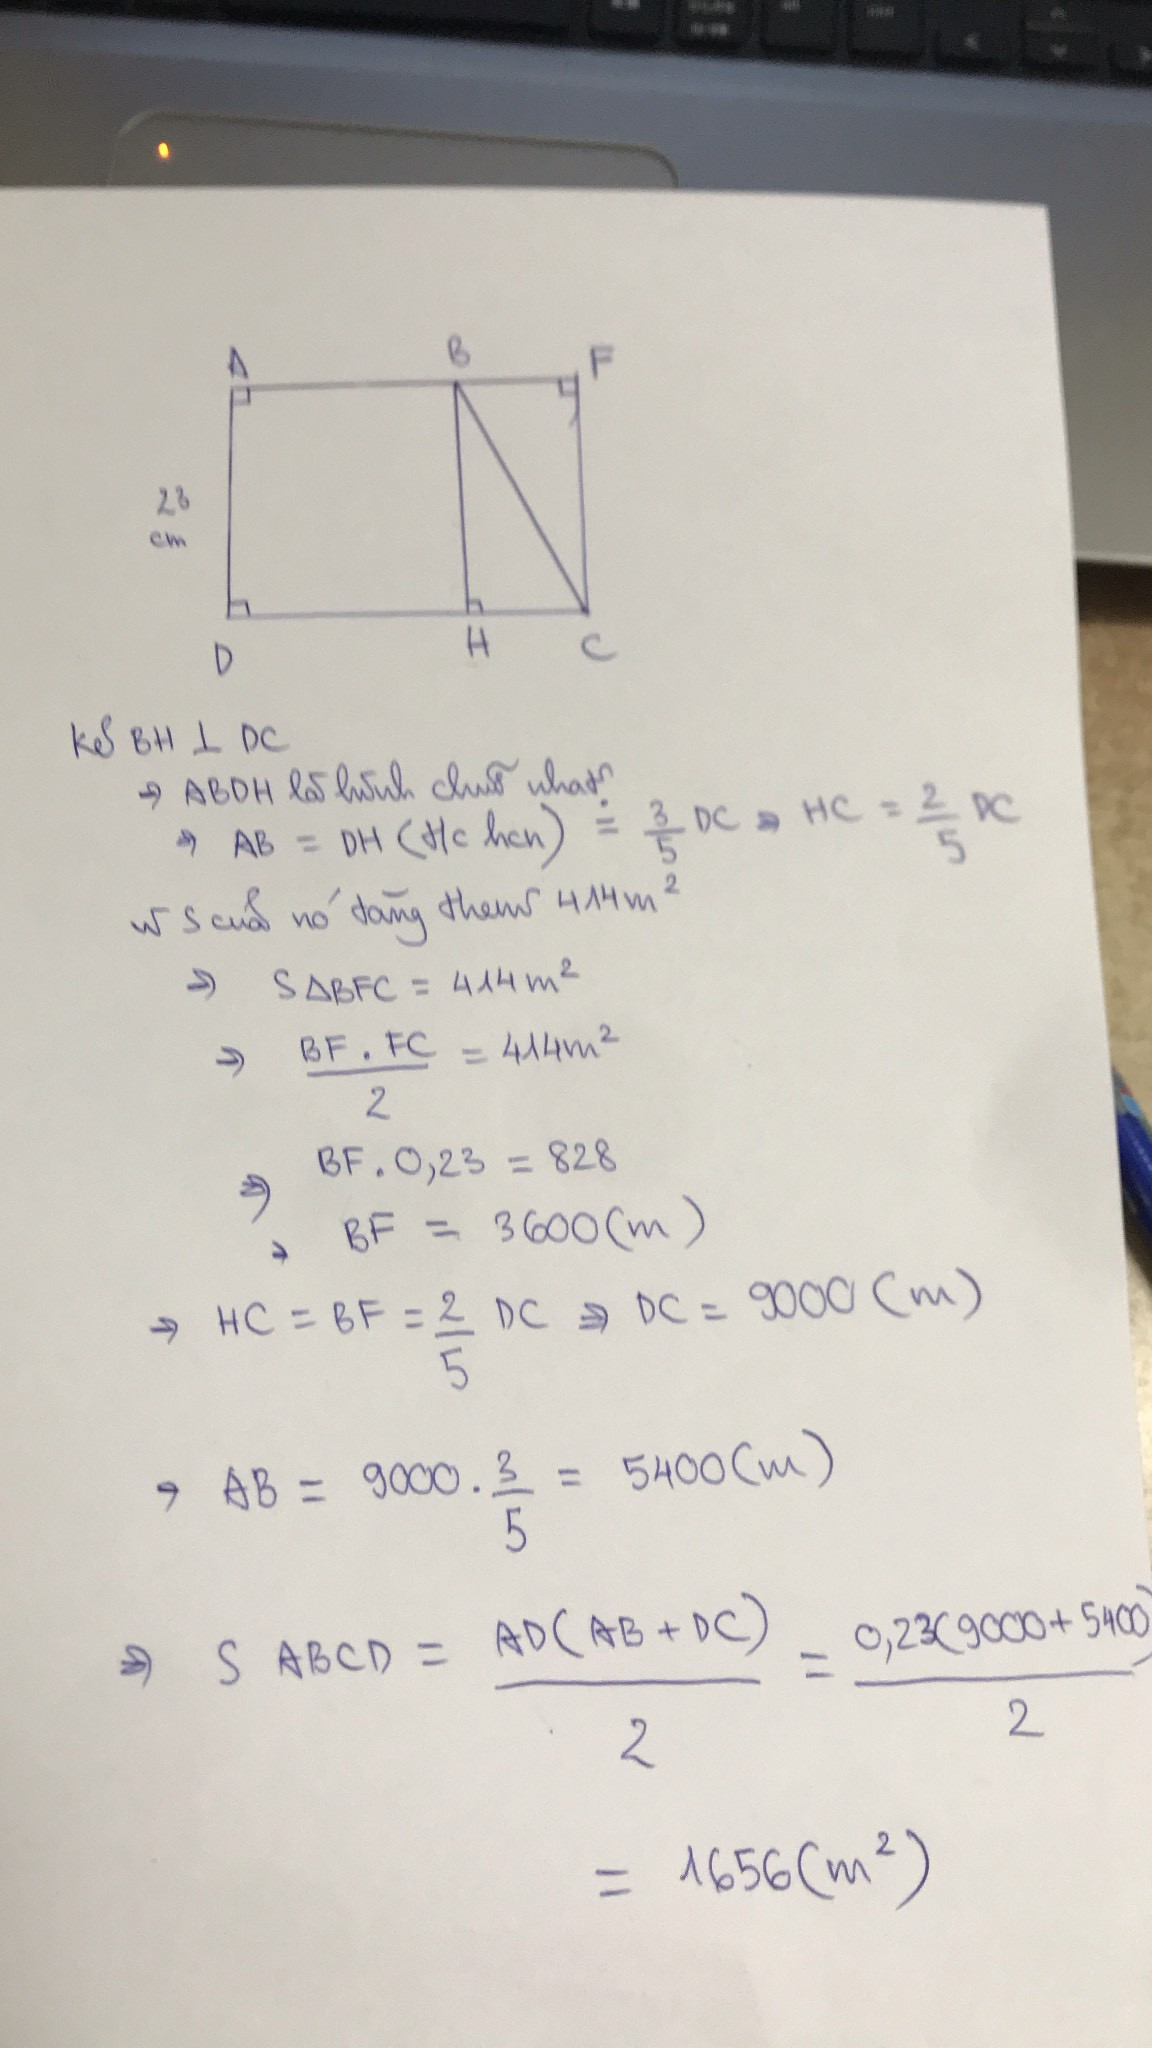 A B F
23
cm
D H C
Kẻ BH ⊥ DC
→ ABDH là hình chữ nhật
→ AB = DH (t/c hcn) = 3/5 DC → HC = 2/5 DC
vì S của nó tăng thêm 414m²
⇒ SΔBFC = 414m²
⇒ BF . FC / 2 = 414m²
⇒ BF . 0,23 = 828
→ BF = 3600(m)
→ HC = BF = 2/5 DC ⇒ DC = 9000 (m)
→ AB = 9000 . 3/5 = 5400(m)
⇒ S ABCD = AD(AB + DC) / 2 = 0,23(9000 + 5400) / 2
= 1656(m²)